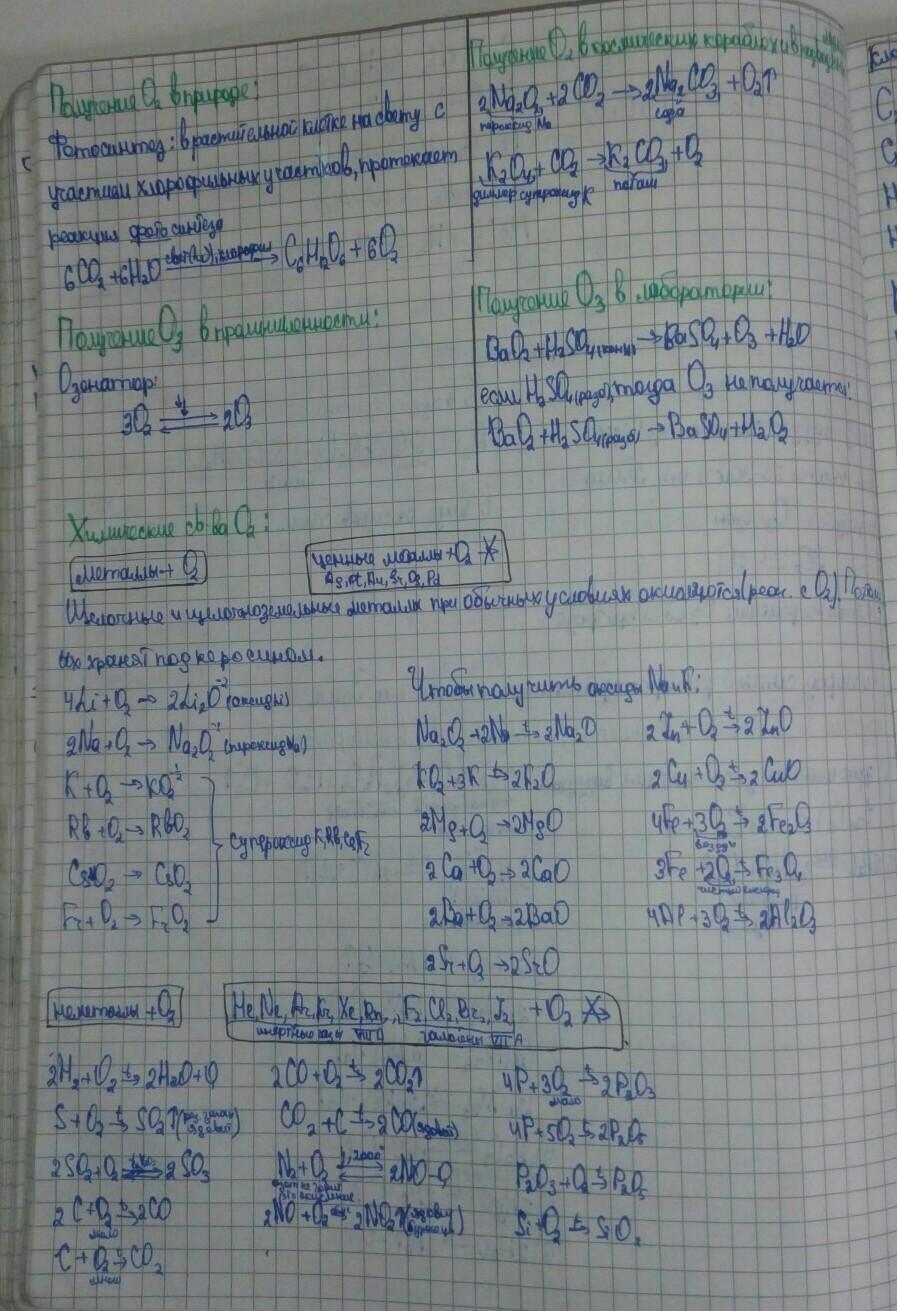 Получение O₂ в природе:
Фотосинтез: в растительной клетке на свету с
участием хлорофильных участков, протекает
реакция фотосинтеза
6CO₂ + 6H₂O свет(hν), хлорофилл → C₆H₁₂O₆ + 6O₂
Получение O₃ в промышленности:
Озонатор:
3O₂ ⇄ 2O₃
Получение O₂ в космических кораблях и
2Na₂O₂ + 2CO₂ → 2Na₂CO₃ + O₂↑
пероксид Na сода
K₂O₄ + CO₂ → K₂CO₃ + O₂
димер супероксид K поташ
Получение O₃ в лаборатории:
BaO₂ + H₂SO₄(конц) → BaSO₄ + O₃ + H₂O
если H₂SO₄(разб), тогда O₃ не получается:
BaO₂ + H₂SO₄(разб) → BaSO₄ + H₂O₂
Химические св-ва O₂:
металлы + O₂
ценные металлы + O₂ ↛
Ag, Pt, Au, Ir, Os, Pd
Щелочные и щелочноземельные металлы при обычных условиях окисляются (реаг. с O₂). Потому
их хранят под керосином.
4Li + O₂ → 2Li₂O⁻² (оксиды)
2Na + O₂ → Na₂O₂⁻¹ (пероксид Na)
K + O₂ → KO₂⁻½
Rb + O₂ → RbO₂
Cs + O₂ → CsO₂
Fr + O₂ → FrO₂
супероксид K, Rb, Cs, Fr
Чтобы получить оксиды Na и K:
Na₂O₂ + 2Na t→ 2Na₂O
KO₂ + 3K t→ 2K₂O
2Mg + O₂ → 2MgO
2Ca + O₂ → 2CaO
2Ba + O₂ → 2BaO
2Sr + O₂ → 2SrO
2Zn + O₂ t→ 2ZnO
2Cu + O₂ t→ 2CuO
4Fe + 3O₂ t→ 2Fe₂O₃
воздух
3Fe + 2O₂ t→ Fe₃O₄
чистый кислород
4Al + 3O₂ t→ 2Al₂O₃
неметаллы + O₂
He, Ne, Ar, Kr, Xe, Rn, F₂, Cl₂, Br₂, I₂ + O₂ ↛
инертные газы VIII A галогены VII A
2H₂ + O₂ t→ 2H₂O + Q
S + O₂ t→ SO₂↑
2SO₂ + O₂ ⇄ 2SO₃
2C + O₂ t→ 2CO
мало
C + O₂ t→ CO₂
много
2CO + O₂ t→ 2CO₂↑
CO₂ + C t→ 2CO (ядовит)
N₂ + O₂ ⇄ 2NO - Q
2NO + O₂ → 2NO₂↑
4P + 3O₂ t→ 2P₂O₃
мало
4P + 5O₂ t→ 2P₂O₅
P₂O₃ + O₂ t→ P₂O₅
Si + O₂ t→ SiO₂